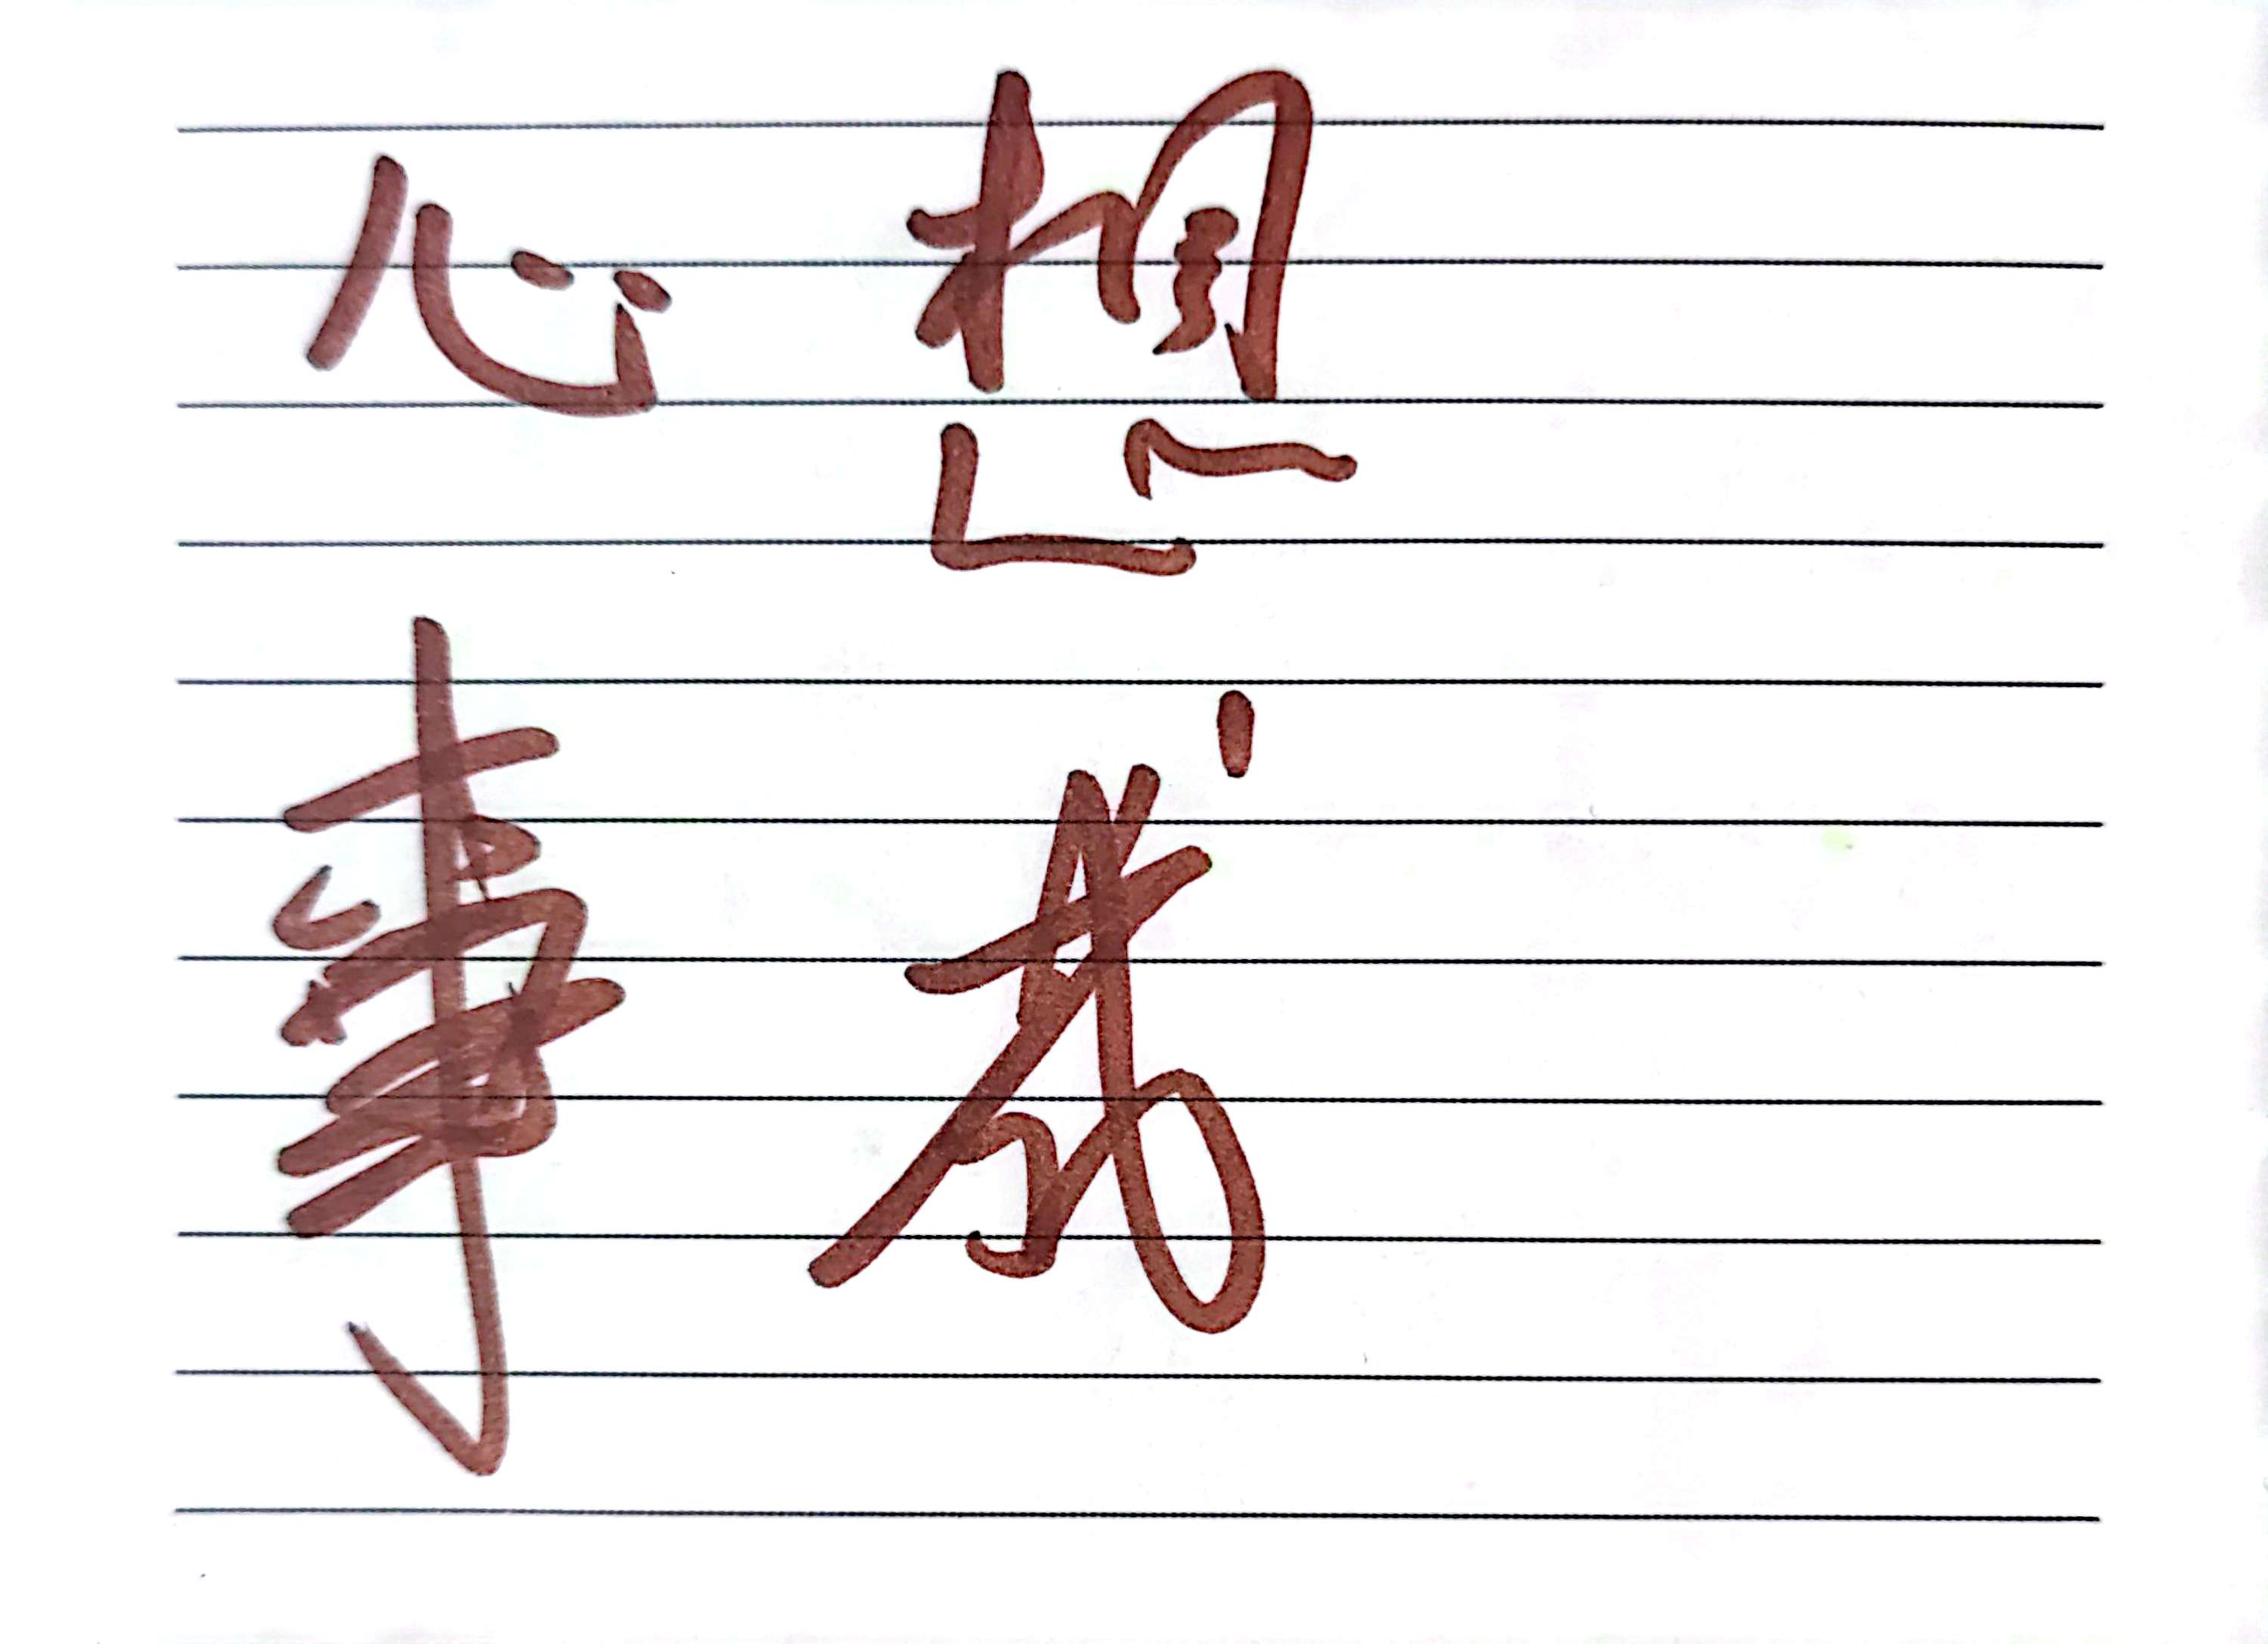 心想
事成